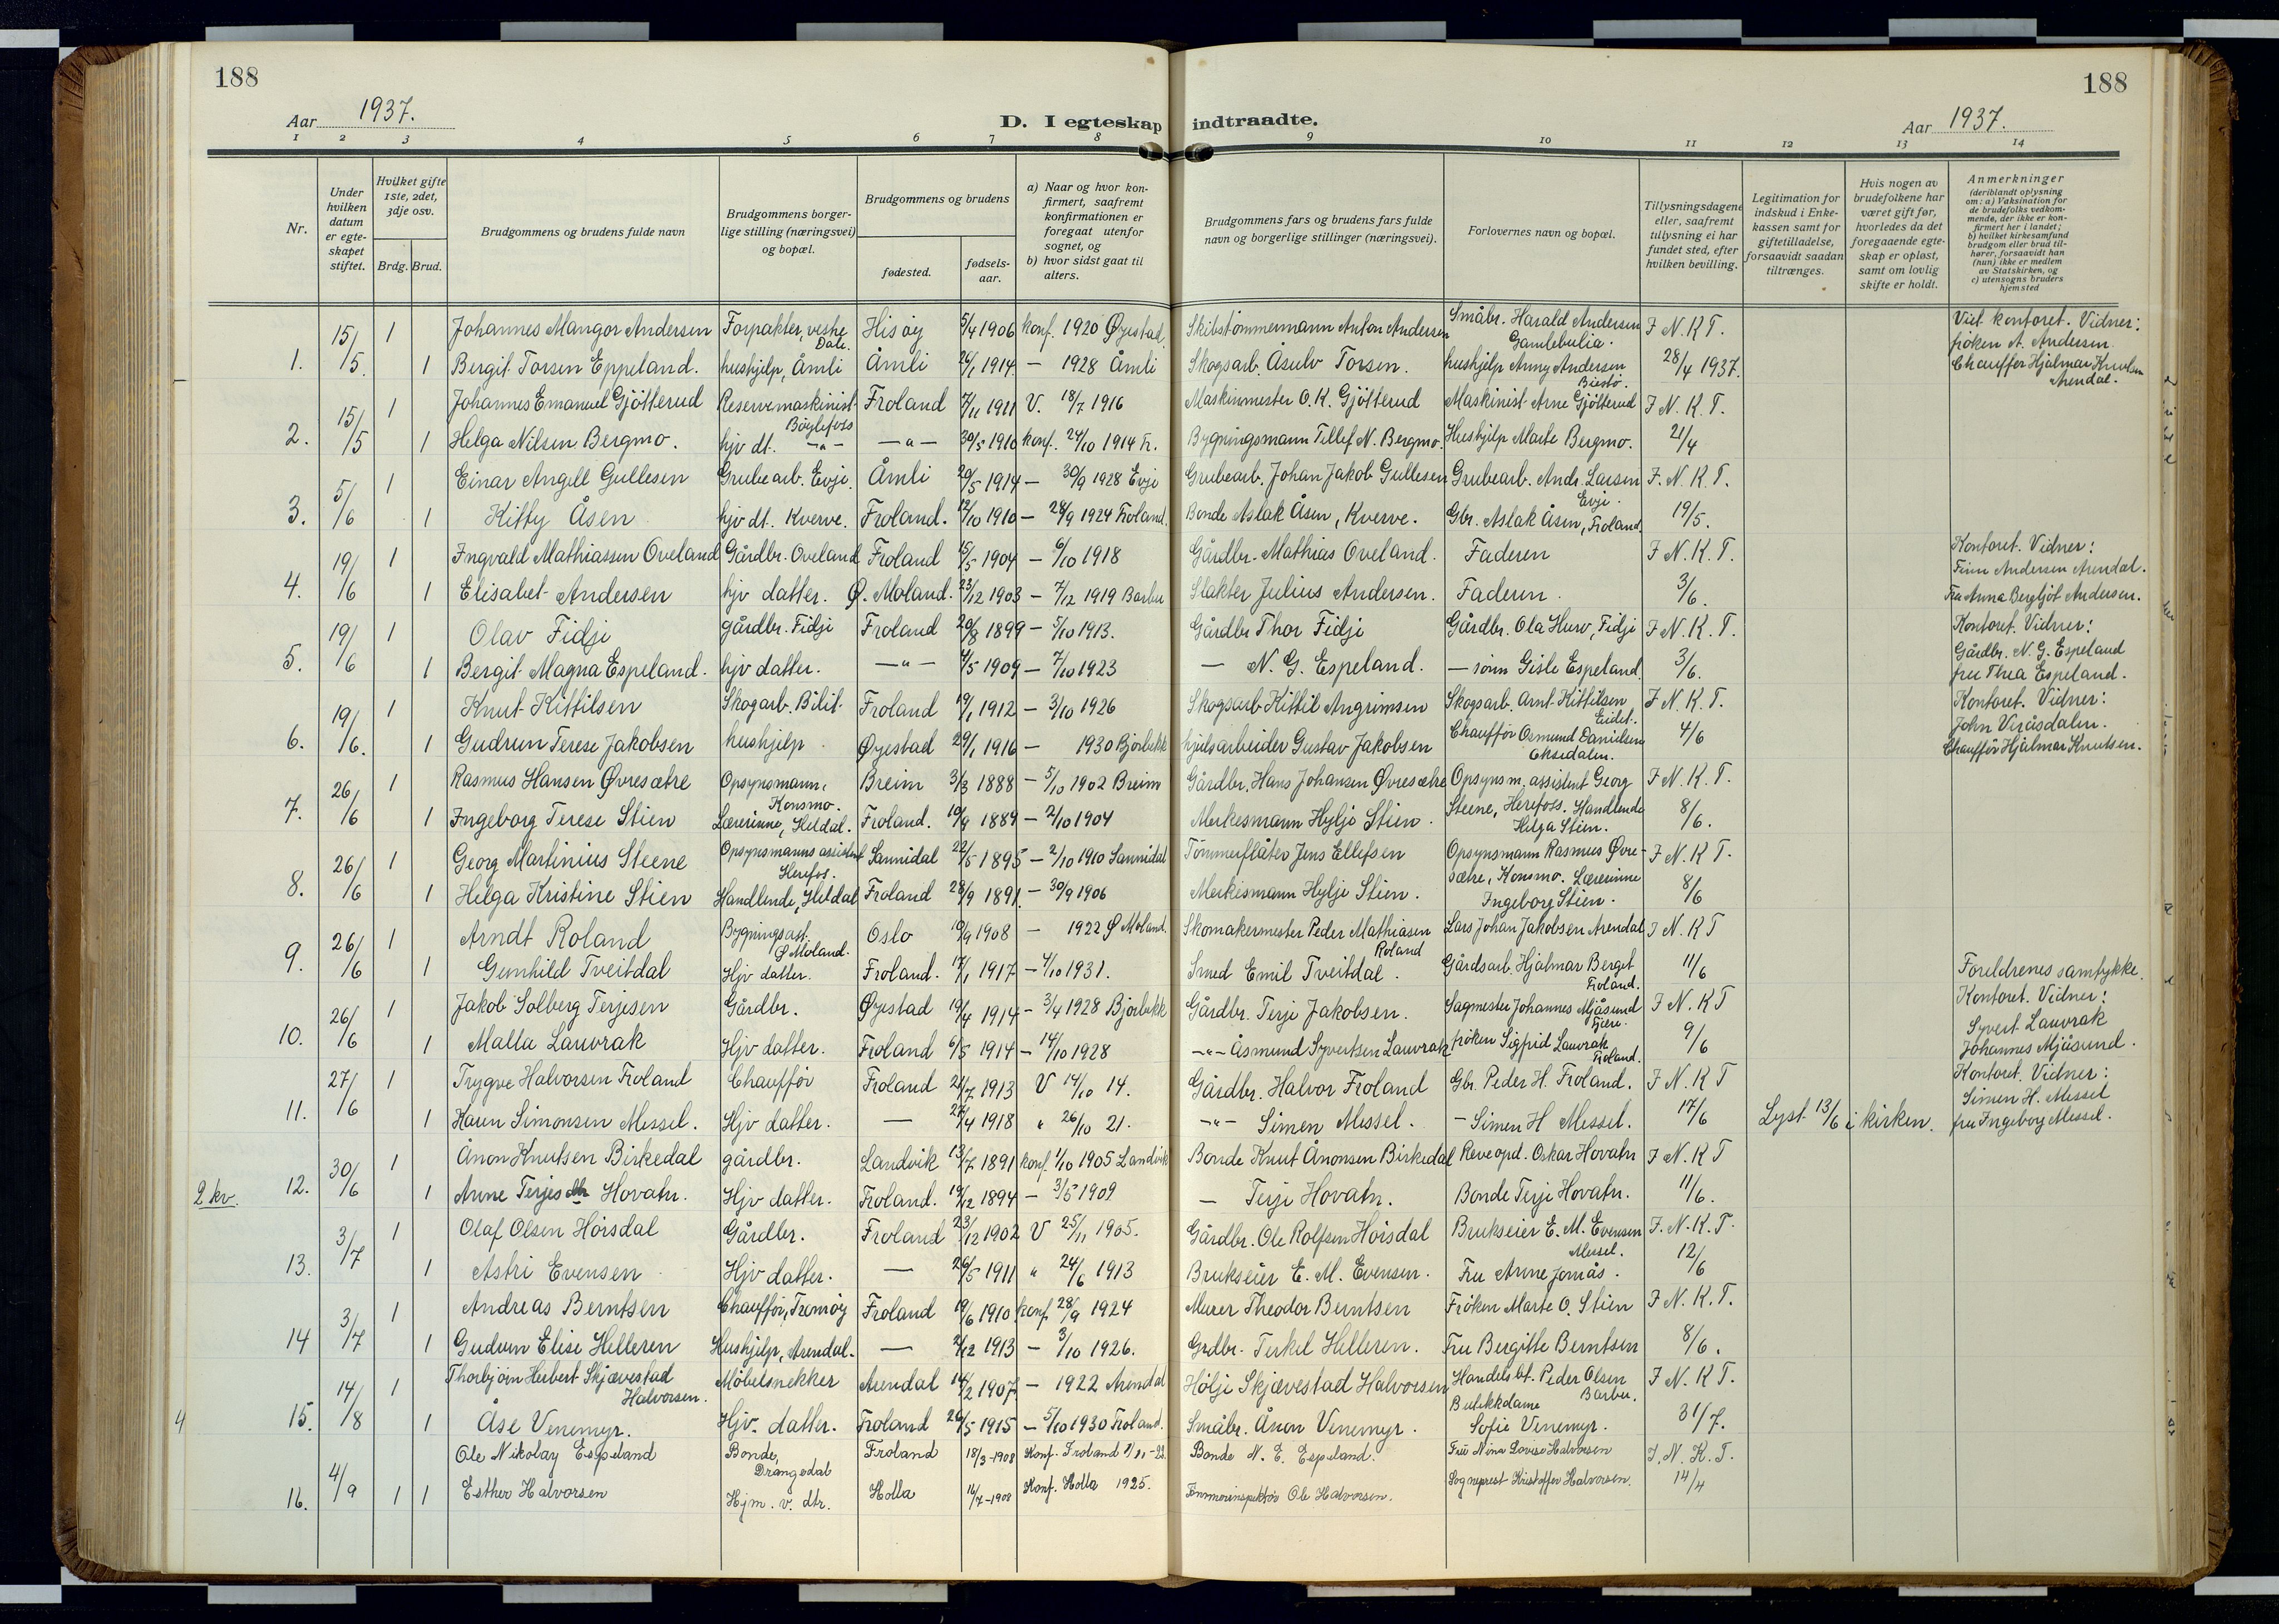 188
188
Aar 1937.
D. I egteskap indtraadte.
Aar 1937.
1 2 3 4 5 6 7 8 9 10 11 12 13 14
Nr.
Under hvilken datum er egteskapet stiftet.
Hvilket gifte 1ste, 2det, 3dje osv.
Brdg. Brud.
Brudgommens og brudens fulde navn
Brudgommens borgerlige stilling (næringsvei) og bopæl.
Brudgommens og brudens
fødested.
fødselsaar.
a) Naar og hvor konfirmert, saafremt konfirmationen er foregaat utenfor sognet, og
b) hvor sidst gaat til alters.
Brudgommens fars og brudens fars fulde navn og borgerlige stillinger (næringsvei).
Forlovernes navn og bopæl.
Tillysningsdagene eller, saafremt tillysning ei har fundet sted, efter hvilken bevilling.
Legitimation for indskud i Enkekassen samt for giftetilladelse, forsaavidt saadan tiltrænges.
Hvis nogen av brudefolkene har været gift før, hvorledes da det foregaaende egteskap er opløst, samt om lovlig skifte er holdt.
Anmerkninger
(deriblandt oplysning om: a) Vaksination for de brudefolks vedkommende, der ikke er konfirmert her i landet;
b) hvilket kirkesamfund brudgom eller brud tilhører, forsaavidt han (hun) ikke er medlem av Statskirken, og
c) utensogns bruders hjemsted
1. 15/5 1 Johannes Mangor Andersen Forpakter, vestre Dale. Hisøy 5/4 1906 konf. 1920 Øyestad. Skibstømmermann Anton Andersen Småbr. Harald Andersen Gamlebulia. J N. K T. Viet kontoret. Vidner: frøken A. Andersen
1 Bergit Torsen Eppeland. hushjelp, Åmli Åmli 26/1 1914 — 1928 Åmli Skogsarb. Åsulv Torsen. hushjelp Anny Andersen 28/4 1937. Chauffør Hjalmar Knutsen Arendal.
2. 15/5 1 Johannes Emanuel Gjötterud Reservemaskinist Bøylefoss Froland 7/11 1911 V. 18/7 1916 Maskinmester O. K. Gjötterud Maskinist Arne Gjötterud J N. K. T.
1 Helga Nilsen Bergmo. hjv dt. -"- —"— 30/5 1910 konf. 24/10 1914 Fr. Bygningsmann Tellef N. Bergmo. Hushjelp Marte Bergmo. 21/4
3. 5/6 1 Einar Angell Gullesen Grubearb. Evje. Åmli 20/5 1914 — 30/9 1928 Evje Grubearb. Johan Jakob Gullesen Grubearb. Andr. Larsen Evje. J. N. K T.
1 Kitty Åsen hjv dt. Kverve. Froland. 12/10 1910 — 28/9 1924 Froland. Bonde Aslak Åsen, Kverve. Gbr. Aslak Åsen, Froland. 19/5.
4. 19/6 1 Ingvald Mathiassen Oveland Gårdbr. Oveland Froland 15/5 1904 — 6/10 1918 Gårdbr. Mathias Oveland. Faderen J N. K. T. Kontoret. Vidner: Finn Andersen Arendal.
1 Elisabet Andersen hjv datter. Ø. Moland. 23/12 1903 — 7/12 1919 Barbu Slakter Julius Andersen. Faderen. 3/6. Fru Anna Bergljot Andersen.
5. 19/6 1 Olav Fidje gårdbr. Fidje Froland 20/8 1899 — 5/10 1913. Gårdbr Thor Fidje Gårdbr. Ola Hurv, Fidje J N. K. T. Kontoret. Vidner: Gårdbr. N. G. Espeland
1 Bergit Magna Espeland. hjv datter. —"— 4/5 1909 — 7/10 1923 — N. G. Espeland. — sönn Gisle Espeland. 3/6. fru Thea Espeland.
6. 19/6. 1 Knut Kittilsen Skogarb. Bilit Froland 19/1 1912 — 3/10 1926 Skogsarb Kittil Angrimsen Skogsarb. Arnt Kittilsen Eidet. J N. K. T. Kontoret. Vidner: John Veråsdalen.
1 Gudrun Terese Jakobsen hushjelp Øyestad 29/1 1916 — 1930 Bjorbekk hjulsarbeider Gustav Jakobsen Chauffør Osmund Danielsen 4/6 Chauffør Hjalmar Knutsen.
7. 26/6 1 Rasmus Hansen Øvresætre Opsynsmann, Konsmo. Breim 3/3 1888 — 5/10 1902 Breim Gårdbr. Hans Johansen Øvresætre Opsynsm. assistent Georg J N. K. T.
1 Ingeborg Terese Stien Lærerinne, Heldal. Froland. 10/9 1889 — 2/10 1904 Merkesmann Hylje Stien. Steene, Herefoss. Handlende Helga Stien. 8/6.
8. 26/6 1 Georg Martinius Steene Opsynsmanns assistent Herefos. Sannidal 22/5 1895 — 2/10 1910 Sannidal Tömmerflåter Jens Ellefsen Opsynsmann Rasmus Øvre- J N. K T.
1 Helga Kristine Stien Handlende, Heldal Froland 28/9 1891. — 30/9 1906 Merkesmann Hylje Stien. sætre, Konsmo. Lærerinne Ingeborg Stien. 8/6
9. 26/6 1 Arndt Roland Bygningsast. Ø Moland. Oslo 10/9 1908 — 1922 Ø Moland. Skomakermester Peder Mathiasen Roland Lars Johan Jakobsen Arendal J N. K T
1 Gunhild Tveitdal Hjv datter. Froland. 17/1 1917 — 4/10 1931. Smed Emil Tveitdal. Gårdsarb. Hjalmar Berget Froland. 11/6 Foreldrenes samtykke.
10. 26/6 1 Jakob Solberg Terjesen Gårdbr. Øyestad 19/4 1914 — 3/4 1928 Bjorbekk Gårdbr. Terje Jakobsen. Sagmester Johannes Mjåsund Fjære. J N. K T Kontoret. Vidner: Syvert Lauvrak
1 Malla Lauvrak Hjv datter. Froland 6/5 1914 — 14/10 1928 -"- Åsmund Syvertsen Lauvrak frøken Sigfrid Lauvrak Froland. 9/6 Johannes Mjåsund.
11. 27/6 1 Trygve Halvorsen Froland Chauffør Froland 21/7 1913 V 14/10 14. Gårdbr. Halvor Froland Gbr. Peder H. Froland. J N. K T Kontoret. Vidner: Simen H. Messel
1 Karen Simonsen Messel. Hjv datter. — 27/4 1918 " 26/10 21. -"- Simen Messel. — Simen H Messel. 17/6 Lyst 13/6 i kirken. fru Ingeborg Messel.
2 kv. 12. 30/6 1 Ånon Knutsen Birkedal gårdbr. Landvik 13/7 1891 konf. 1/10 1905 Landvik Bonde Knut Ånonsen Birkedal Reveopd. Oskar Hovatn J N. K T
1 Anne Terjesdtr Hovatn. Hjv datter. Froland. 19/12 1894 — 3/5 1909 — Terje Hovatn. Bonde Terje Hovatn. 11/6.
13. 3/7 1 Olaf Olsen Hörsdal Gårdbr. Froland 23/12 1902 V 25/11 1905. Gårdbr. Ole Rolfsen Hörsdal Brukseier E. M. Evensen Messel. J. N. K. T.
1 Astri Evensen Hjv datter. — 26/5 1911 " 24/6 1913 Brukseier E. M. Evensen. Fru Anne Jomås. 12/6
14 3/7 1 Andreas Berntsen Chauffør, Tromöy Froland 19/6 1910 konf. 28/9 1924 Murer Theodor Berntsen Fröken Marte O. Stien J N. K. T.
1 Gudrun Elise Helleren Hushjelp, Arendal. — 2/12 1913 — 3/10 1926. Grdbr. Terkel Helleren. Fru Bergitte Berntsen 8/6.
4 15. 14/8 1 Thorbjörn Herbert Skjævestad Halvorsen. Möbelsnekker Arendal 14/2 1907. — 1922 Arendal Hölje Skjævestad Halvorsen Handelsbet. Peder Olsen Barbu. J N. K T.
1 Åse Venemyr. Hjv. datter. Froland 26/5 1915 — 5/10 1930 Froland. Småbr. Ånon Venemyr. Butikkdame Sofie Venemyr. 31/7.
16. 4/9 1 1 Ole Nikolay Espeland Bonde, Drangedal Froland 18/3-1908 Konf. Froland Bonde N. E. Espeland. Fru Nina Lovise Halvorsen J. N. K. T.
Esther Halvorsen Hjm. v. dtr. Holla 16/7-1908 Konf. Holla 1925. Tømmerinspektör Ole Halvorsen. Sogneprest Kristoffer Halvorsen. 14/4